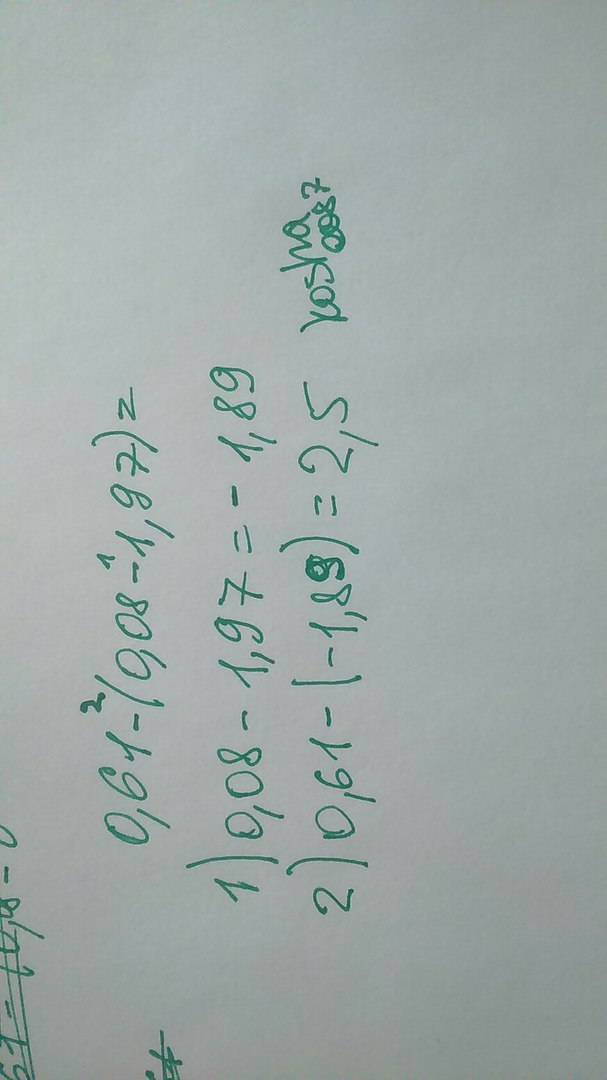 0,61-(0,08-1,97)=
2 1
1) 0,08-1,97=-1,89
2) 0,61-(-1,89)=2,5